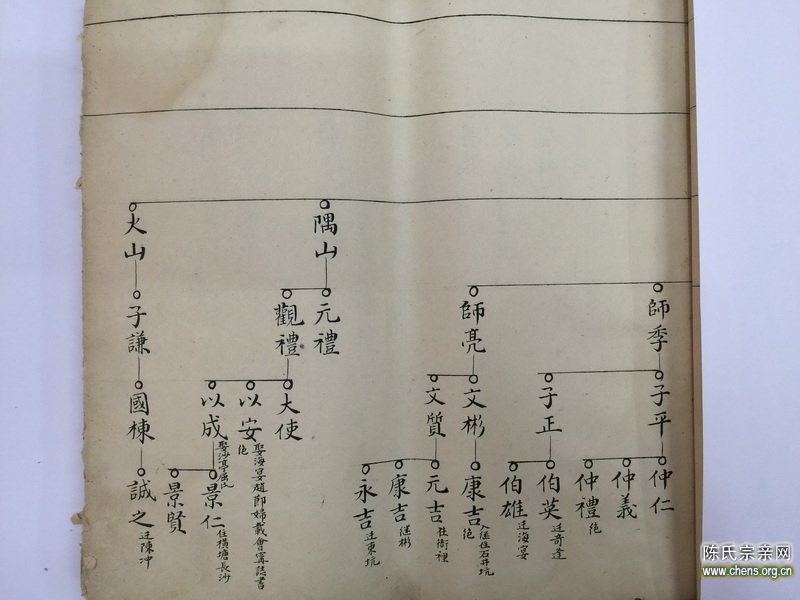 師季
子平
仲仁
仲義
仲禮
絶
子正
伯英
迁奇逹
伯雄
迁海宴
師亮
文彬
康吉
入继住石井坑
绝
文質
元吉
住衙裡
康吉
继彬
永吉
迁東坑
隅山
元禮
觀禮
大使
以安
娶海宴趙郎婦載會寧誌書
绝
以成
娶沙亭屈氏
景仁
住橫塘長沙
景賢
火山
子謙
國棟
誠之
迁陳冲
陈氏宗亲网
www.chens.org.cn